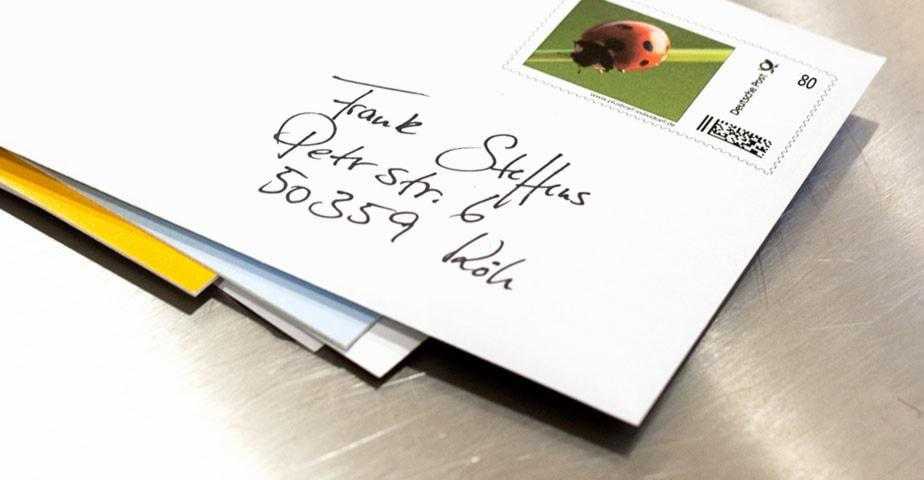 Frank Steffens
Petrstr. 6
50359 Köln
www.plusbrief-individuell.de
Deutsche Post
80